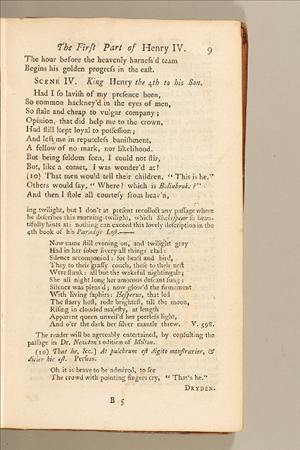 The First Part of Henry IV. 9
The hour before the heavenly harness'd team
Begins his golden progress in the east.
SCENE IV. King Henry the 4th to his Son.
Had I so lavish of my presence been,
So common hackney'd in the eyes of men,
So stale and cheap to vulgar company;
Opinion, that did help me to the crown,
Had still kept loyal to possession;
And left me in reputeless banishment,
A fellow of no mark, nor likelihood.
But being seldom seen, I could not stir,
But, like a comet, I was wonder'd at!
(10) That men would tell their children, "This is he."
Others would say, "Where? which is Bolinbroke?"
And then I stole all courtesy from heav'n,
ing twilight, but I don't at present recollect any passage where
he describes this morning-twilight, which Shakespear so beau-
tifully hints at: nothing can exceed this lovely description in the
4th book of his Paradise Lost.
Now came still evening on, and twilight gray
Had in her sober livery all things clad:
Silence accompanied: for beast and bird,
They to their grassy couch, these to their nest
Were slunk: all but the wakeful nightingale;
She all night long her amorous descant sung:
Silence was pleas'd; now glow'd the firmament
With living saphirs: Hesperus, that led
The starry host, rode brightest, till the moon,
Rising in clouded majesty, at length
Apparent queen unveil'd her peerless light,
And o'er the dark her silver mantle threw. V. 598.
The reader will be agreeably entertained, by consulting the
passage in Dr. Newton's edition of Milton.
(10) That he, &c.] At pulchrum est digito monstrarier, &
dicier hic est. Persius.
Oh it is brave to be admired, to see
The crowd with pointing fingers cry, "That's he."
DRYDEN.
B 5